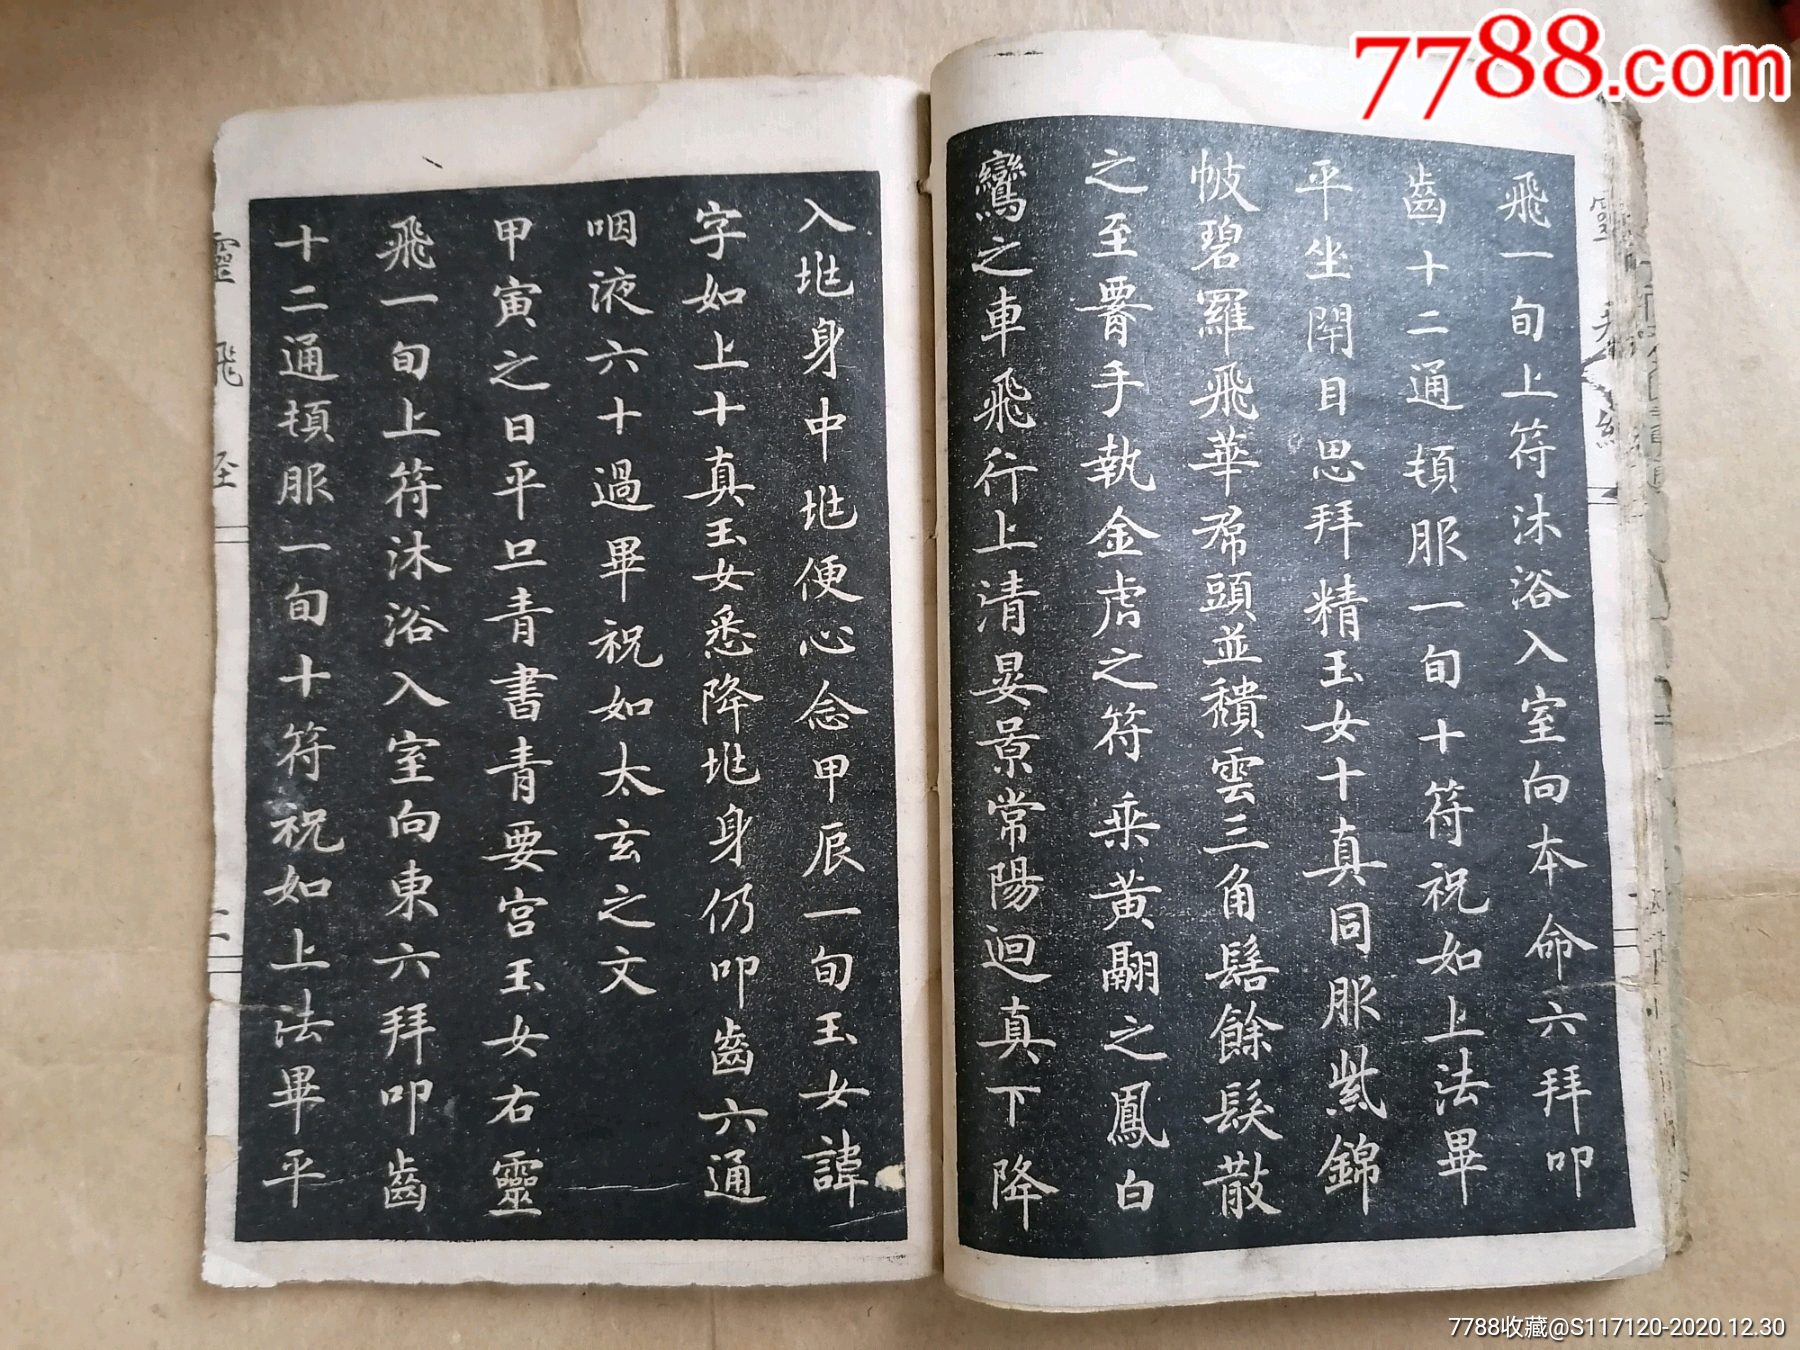 7788.com
飛一旬上符沐浴入室向本命六拜叩
齒十二通頓服一旬十符祝如上法畢
平坐閉目思拜精玉女十真同服紫錦
帔碧羅飛華帬頭並穨雲三角髻餘髮散
之至署手執金虎之符乘黃翮之鳳白
鸞之車飛行上清晏景常陽迴真下降
入𡉏身中𡉏便心念甲辰一旬玉女諱
字如上十真玉女悉降𡉏身仍叩齒六通
咽液六十過畢祝如太玄之文
甲寅之日平旦青書青要宮玉女右靈
飛一旬上符沐浴入室向東六拜叩齒
十二通頓服一旬十符祝如上法畢平
靈飛經
7788收藏@S117120-2020.12.30